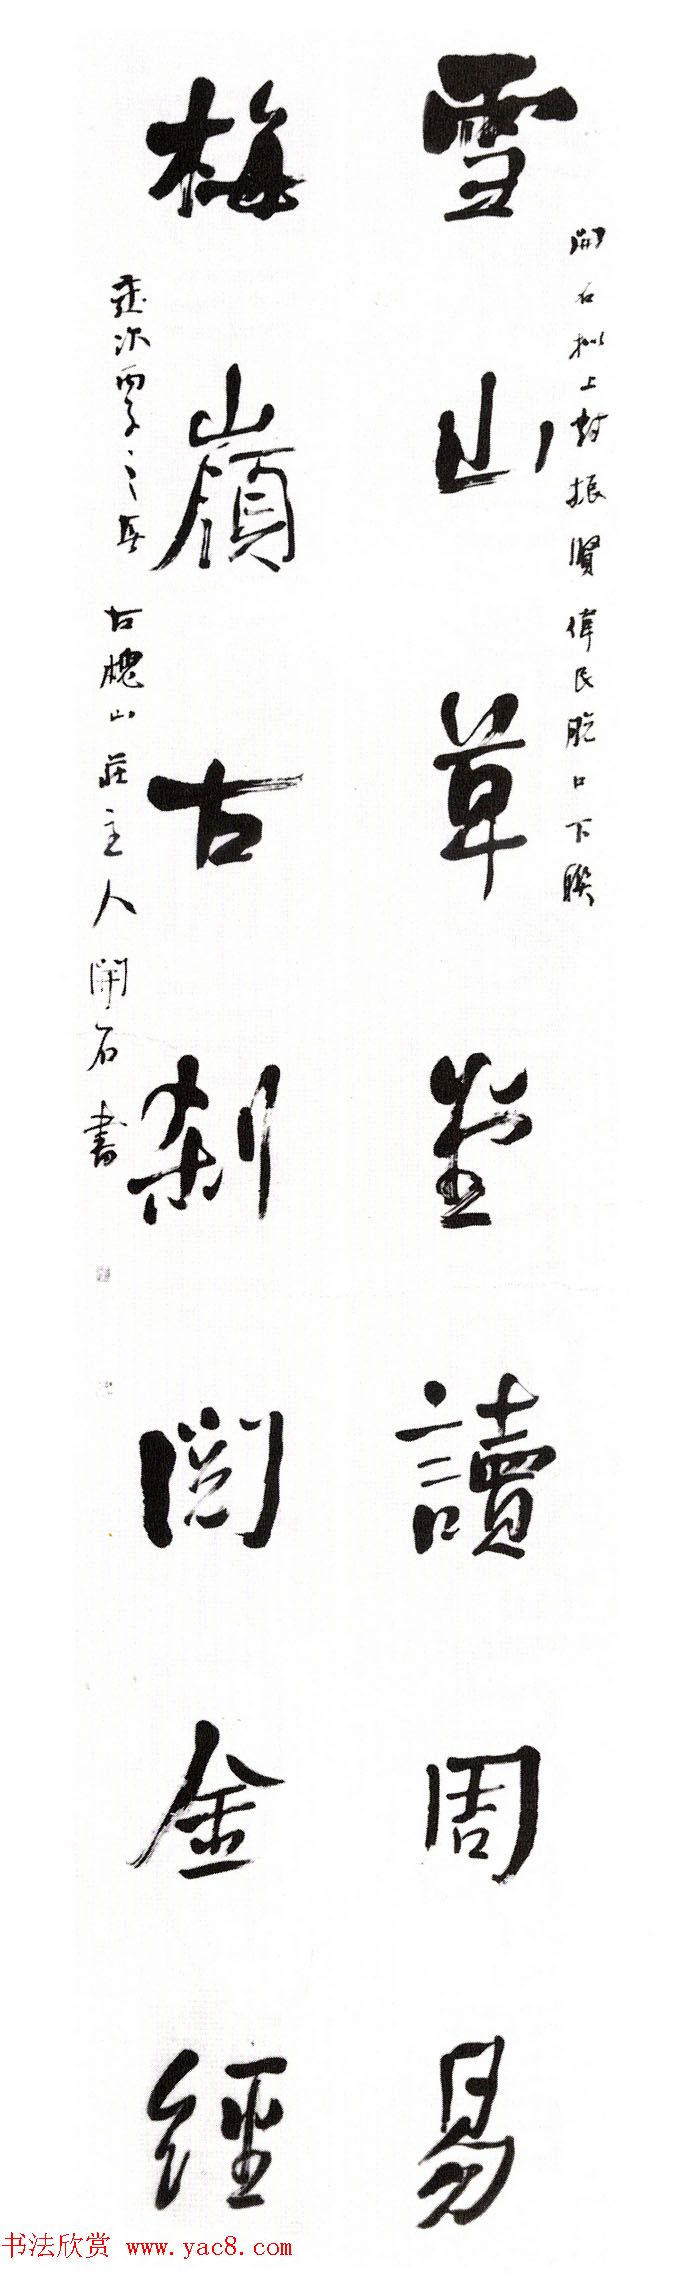 開石拟上對振賢偉民脫口下聯
雪山草堂讀周易
梅嶺古刹閱金經
歲次丙子之春 古槐山莊主人開石書
书法欣赏 www.yac8.com